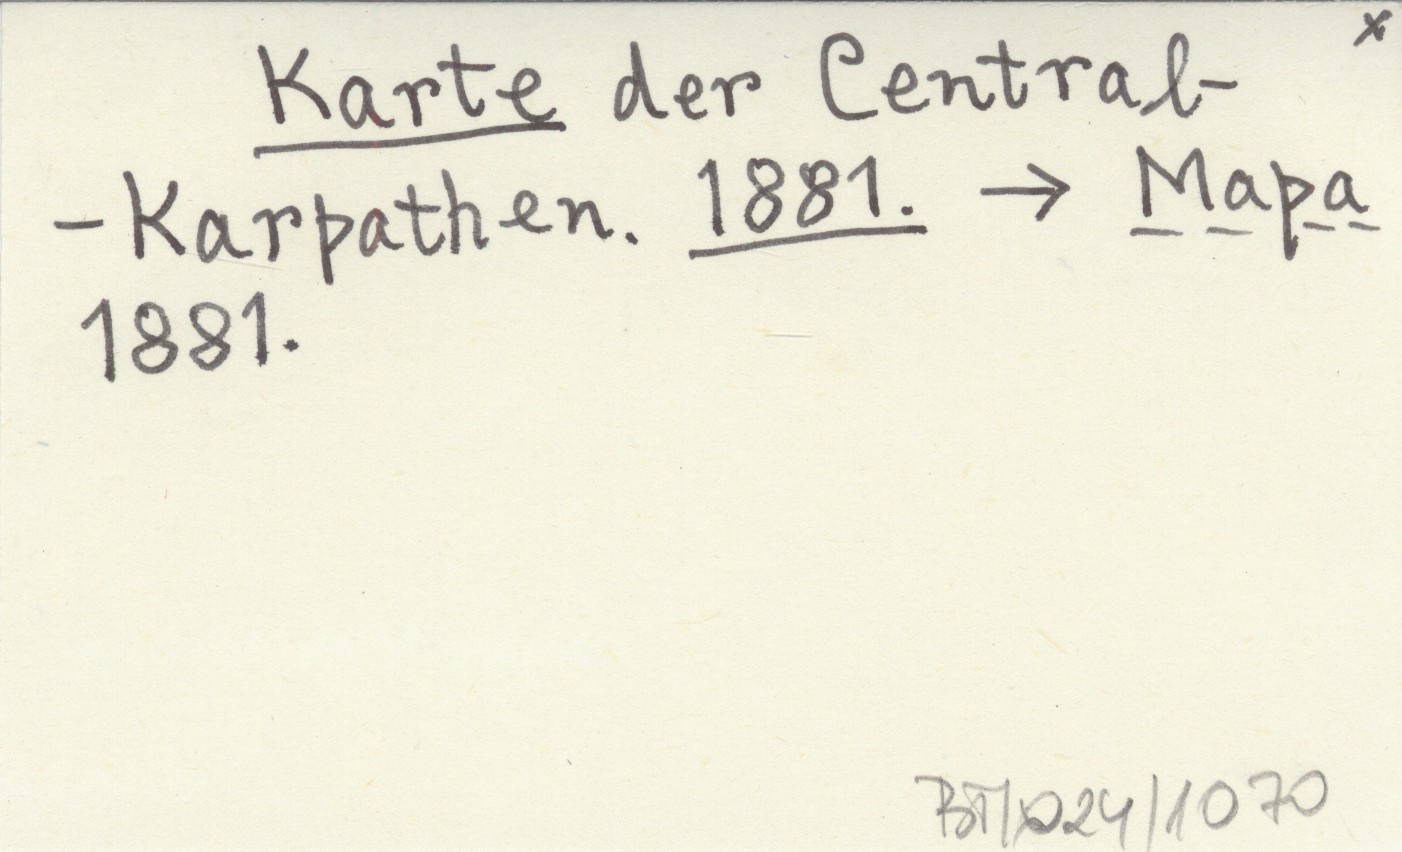 x
Karte der Central-
-Karpathen. 1881. → Mapa
1881.
BT/024/1070